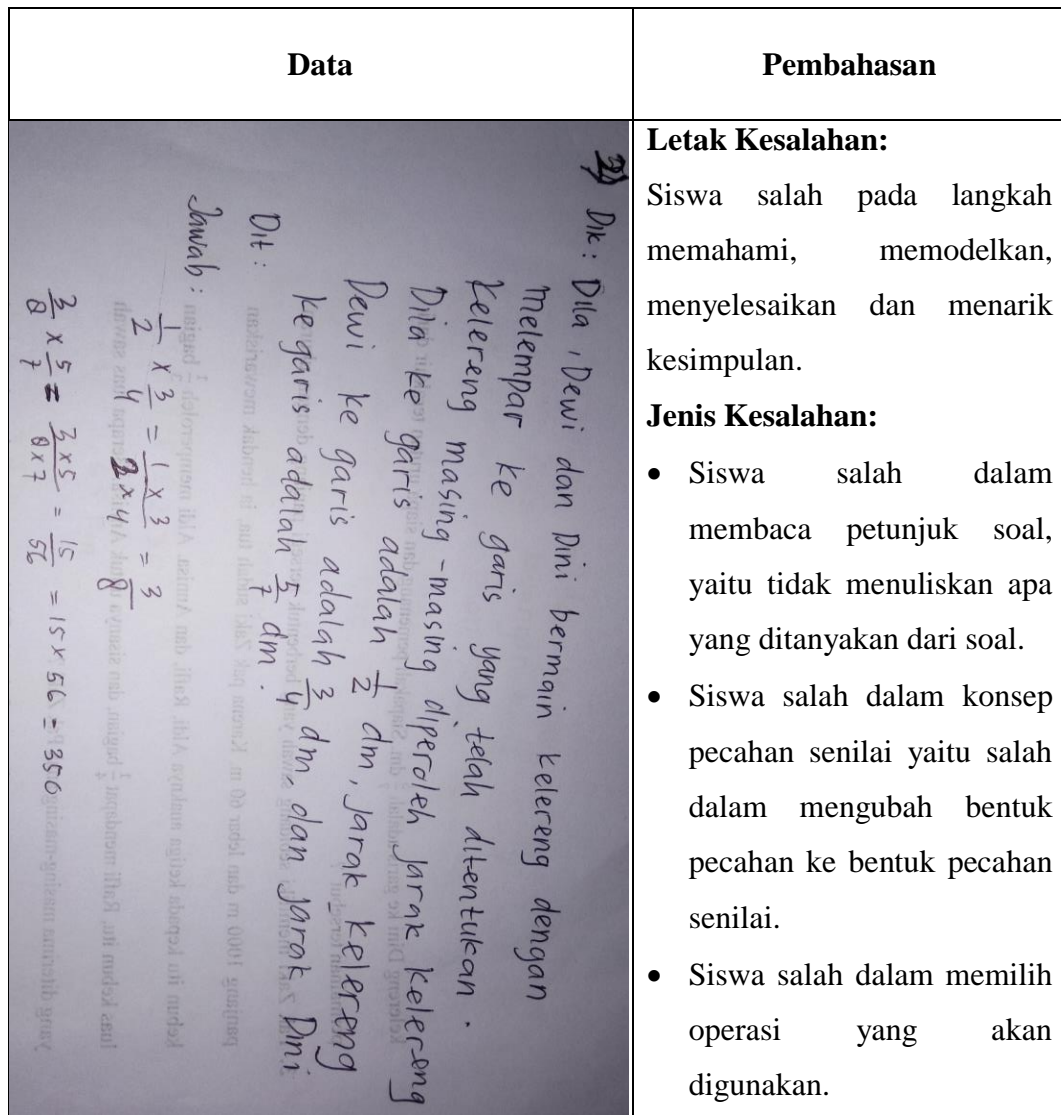 Data
Pembahasan
3) Dik : Dila, Dewi dan Dini bermain kelereng dengan
melempar ke garis yang telah ditentukan.
Kelereng masing-masing diperoleh jarak kelereng
Dila ke garis adalah 1/2 dm, jarak kelereng
Dewi ke garis adalah 3/4 dm. dan jarak Dini
ke garis adalah 5/7 dm.
Dit :
Jawab :
1/2 x 3/4 = 1 x 3 / 2 x 4 = 3/8
3/8 x 5/7 = 3 x 5 / 8 x 7 = 15/56 = 15 x 56 = 350
Letak Kesalahan:
Siswa salah pada langkah
memahami, memodelkan,
menyelesaikan dan menarik
kesimpulan.
Jenis Kesalahan:
• Siswa salah dalam
membaca petunjuk soal,
yaitu tidak menuliskan apa
yang ditanyakan dari soal.
• Siswa salah dalam konsep
pecahan senilai yaitu salah
dalam mengubah bentuk
pecahan ke bentuk pecahan
senilai.
• Siswa salah dalam memilih
operasi yang akan
digunakan.